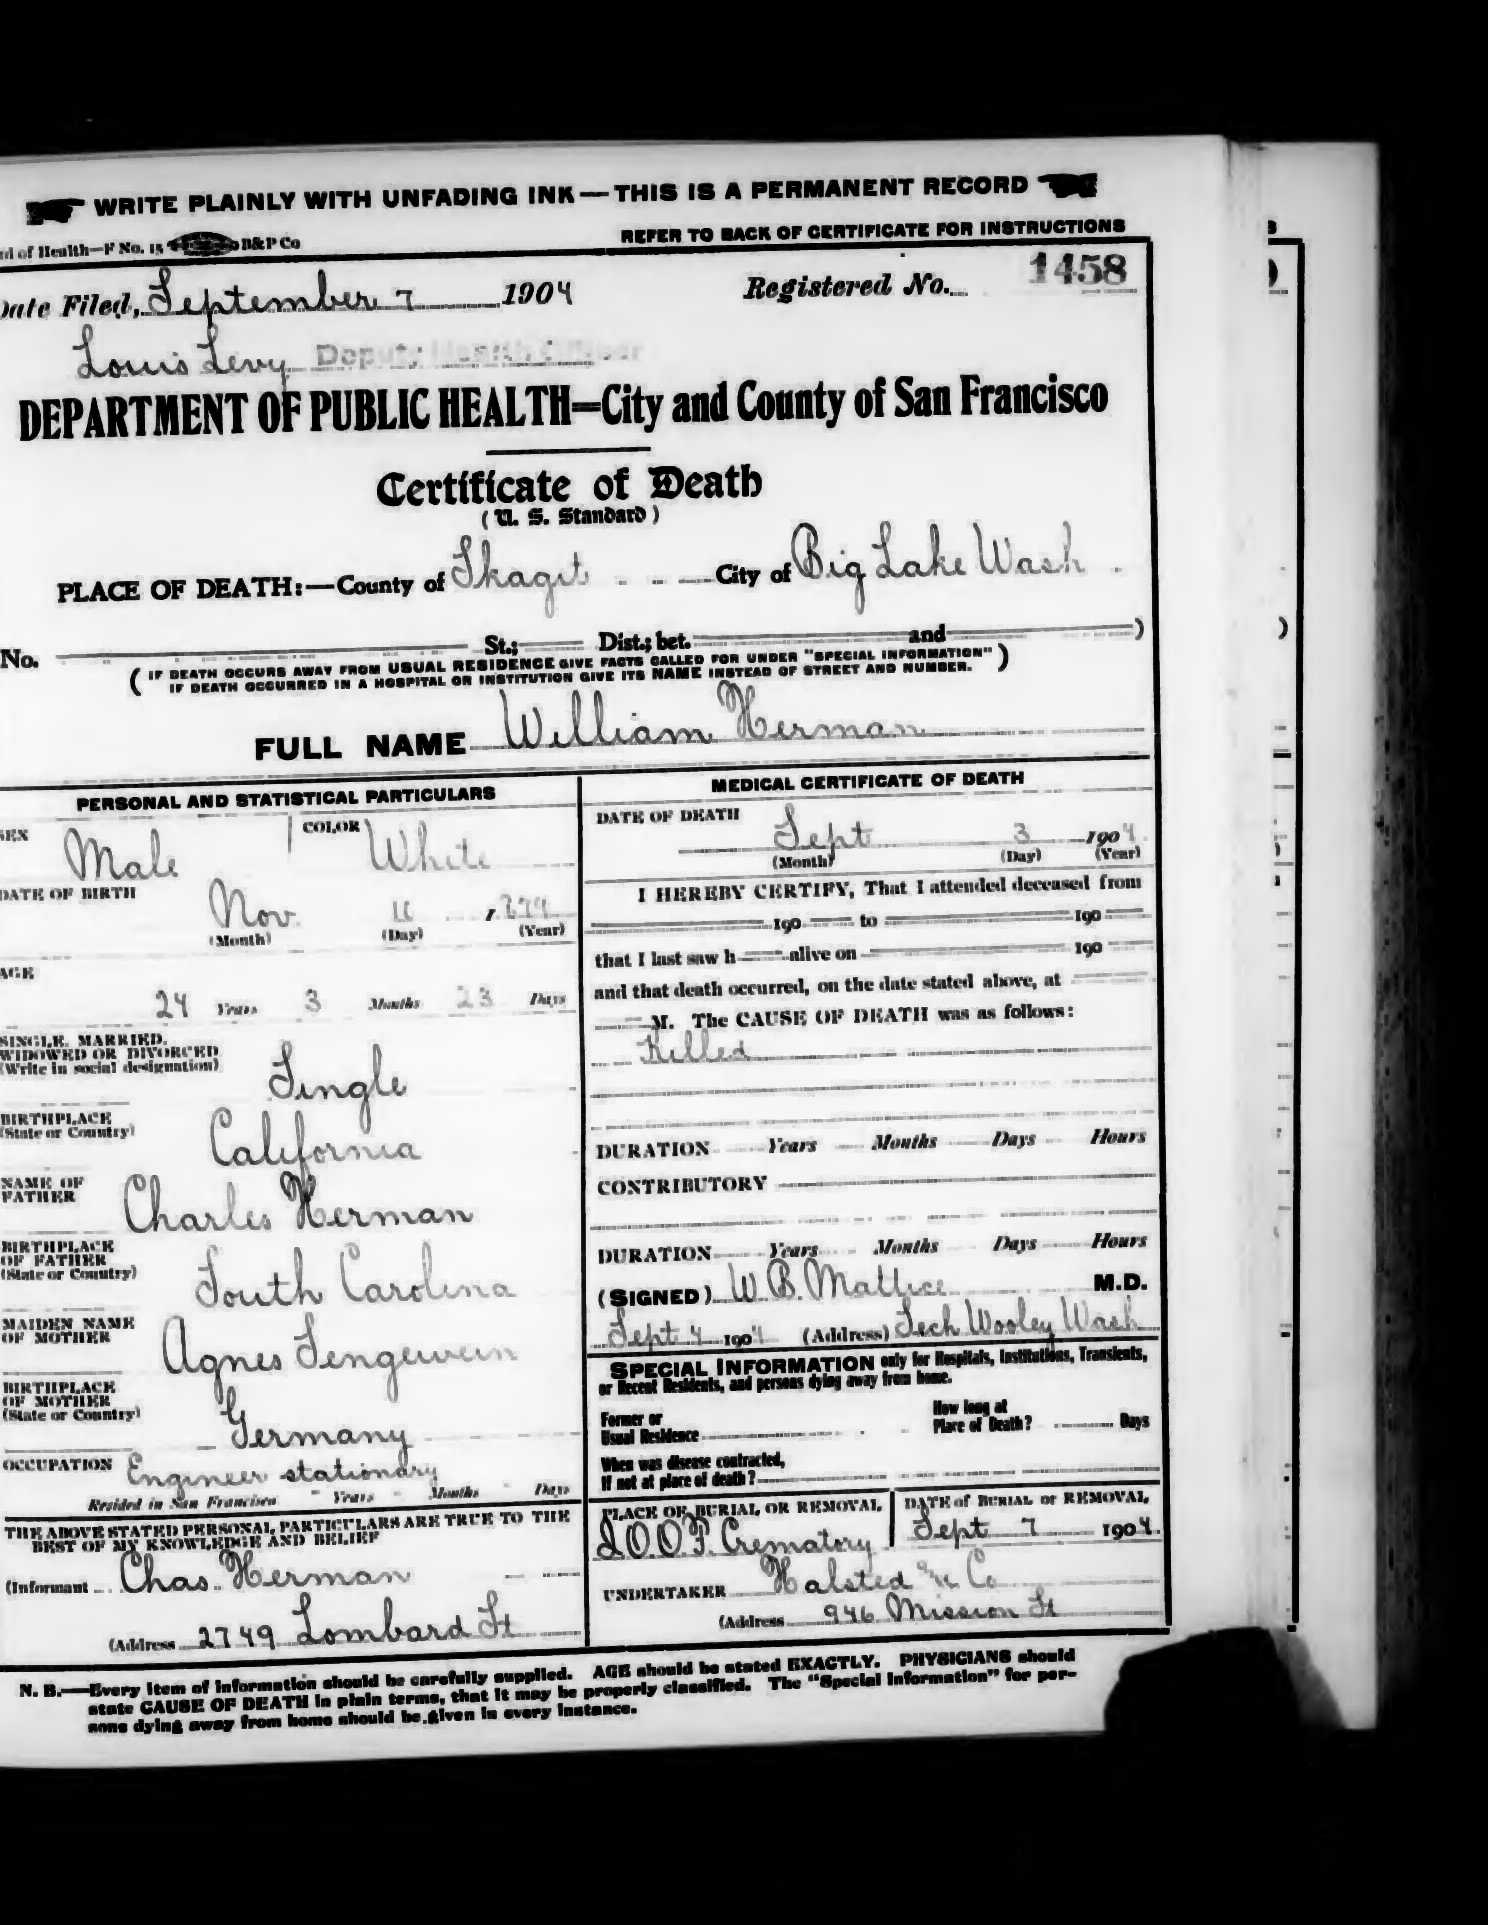 WRITE PLAINLY WITH UNFADING INK — THIS IS A PERMANENT RECORD
of Health—F No. 15 B&P Co REFER TO BACK OF CERTIFICATE FOR INSTRUCTIONS
Date Filed, September 7 1904 Registered No. 1458
Louis Levy Deputy Health Officer
DEPARTMENT OF PUBLIC HEALTH=City and County of San Francisco
Certificate of Death
(U. S. Standard)
PLACE OF DEATH:—County of Skagit City of Big Lake Wash
No. St.; Dist.; bet. and )
( IF DEATH OCCURS AWAY FROM USUAL RESIDENCE GIVE FACTS CALLED FOR UNDER "SPECIAL INFORMATION" )
IF DEATH OCCURRED IN A HOSPITAL OR INSTITUTION GIVE ITS NAME INSTEAD OF STREET AND NUMBER.
FULL NAME William Herman
PERSONAL AND STATISTICAL PARTICULARS
SEX Male COLOR White
DATE OF BIRTH
Nov. 1
(Month) (Day) (Year)
AGE
24 Years 3 Months 23 Days
SINGLE, MARRIED,
WIDOWED OR DIVORCED
(Write in social designation)
Single
BIRTHPLACE
(State or Country)
California
NAME OF
FATHER
Charles Herman
BIRTHPLACE
OF FATHER
(State or Country)
South Carolina
MAIDEN NAME
OF MOTHER
Agnes
BIRTHPLACE
OF MOTHER
(State or Country)
Germany
OCCUPATION Engineer stationary
Resided in San Francisco Years Months Days
THE ABOVE STATED PERSONAL PARTICULARS ARE TRUE TO THE
BEST OF MY KNOWLEDGE AND BELIEF
(Informant Chas. Herman
(Address 2749 Lombard St
MEDICAL CERTIFICATE OF DEATH
DATE OF DEATH
Sept 3 1904
(Month) (Day) (Year)
I HEREBY CERTIFY, That I attended deceased from
190 to 190
that I last saw h alive on 190
and that death occurred, on the date stated above, at
M. The CAUSE OF DEATH was as follows:
Killed
DURATION Years Months Days Hours
CONTRIBUTORY
DURATION Years Months Days Hours
(SIGNED) W. B. Mattice M.D.
Sept 4 1904 (Address) Sech Wooley Wash
SPECIAL INFORMATION only for Hospitals, Institutions, Transients,
or Recent Residents, and persons dying away from home.
Former or
Usual Residence
How long at
Place of Death? Days
When was disease contracted,
If not at place of death?
PLACE OF BURIAL OR REMOVAL
I.O.O.F. Crematory
DATE of BURIAL or REMOVAL
Sept 7 1904
UNDERTAKER Halsted & Co
(Address 946 Mission St
N. B.—Every item of information should be carefully supplied. AGE should be stated EXACTLY. PHYSICIANS should
state CAUSE OF DEATH in plain terms, that it may be properly classified. The "Special Information" for per-
sons dying away from home should be given in every instance.